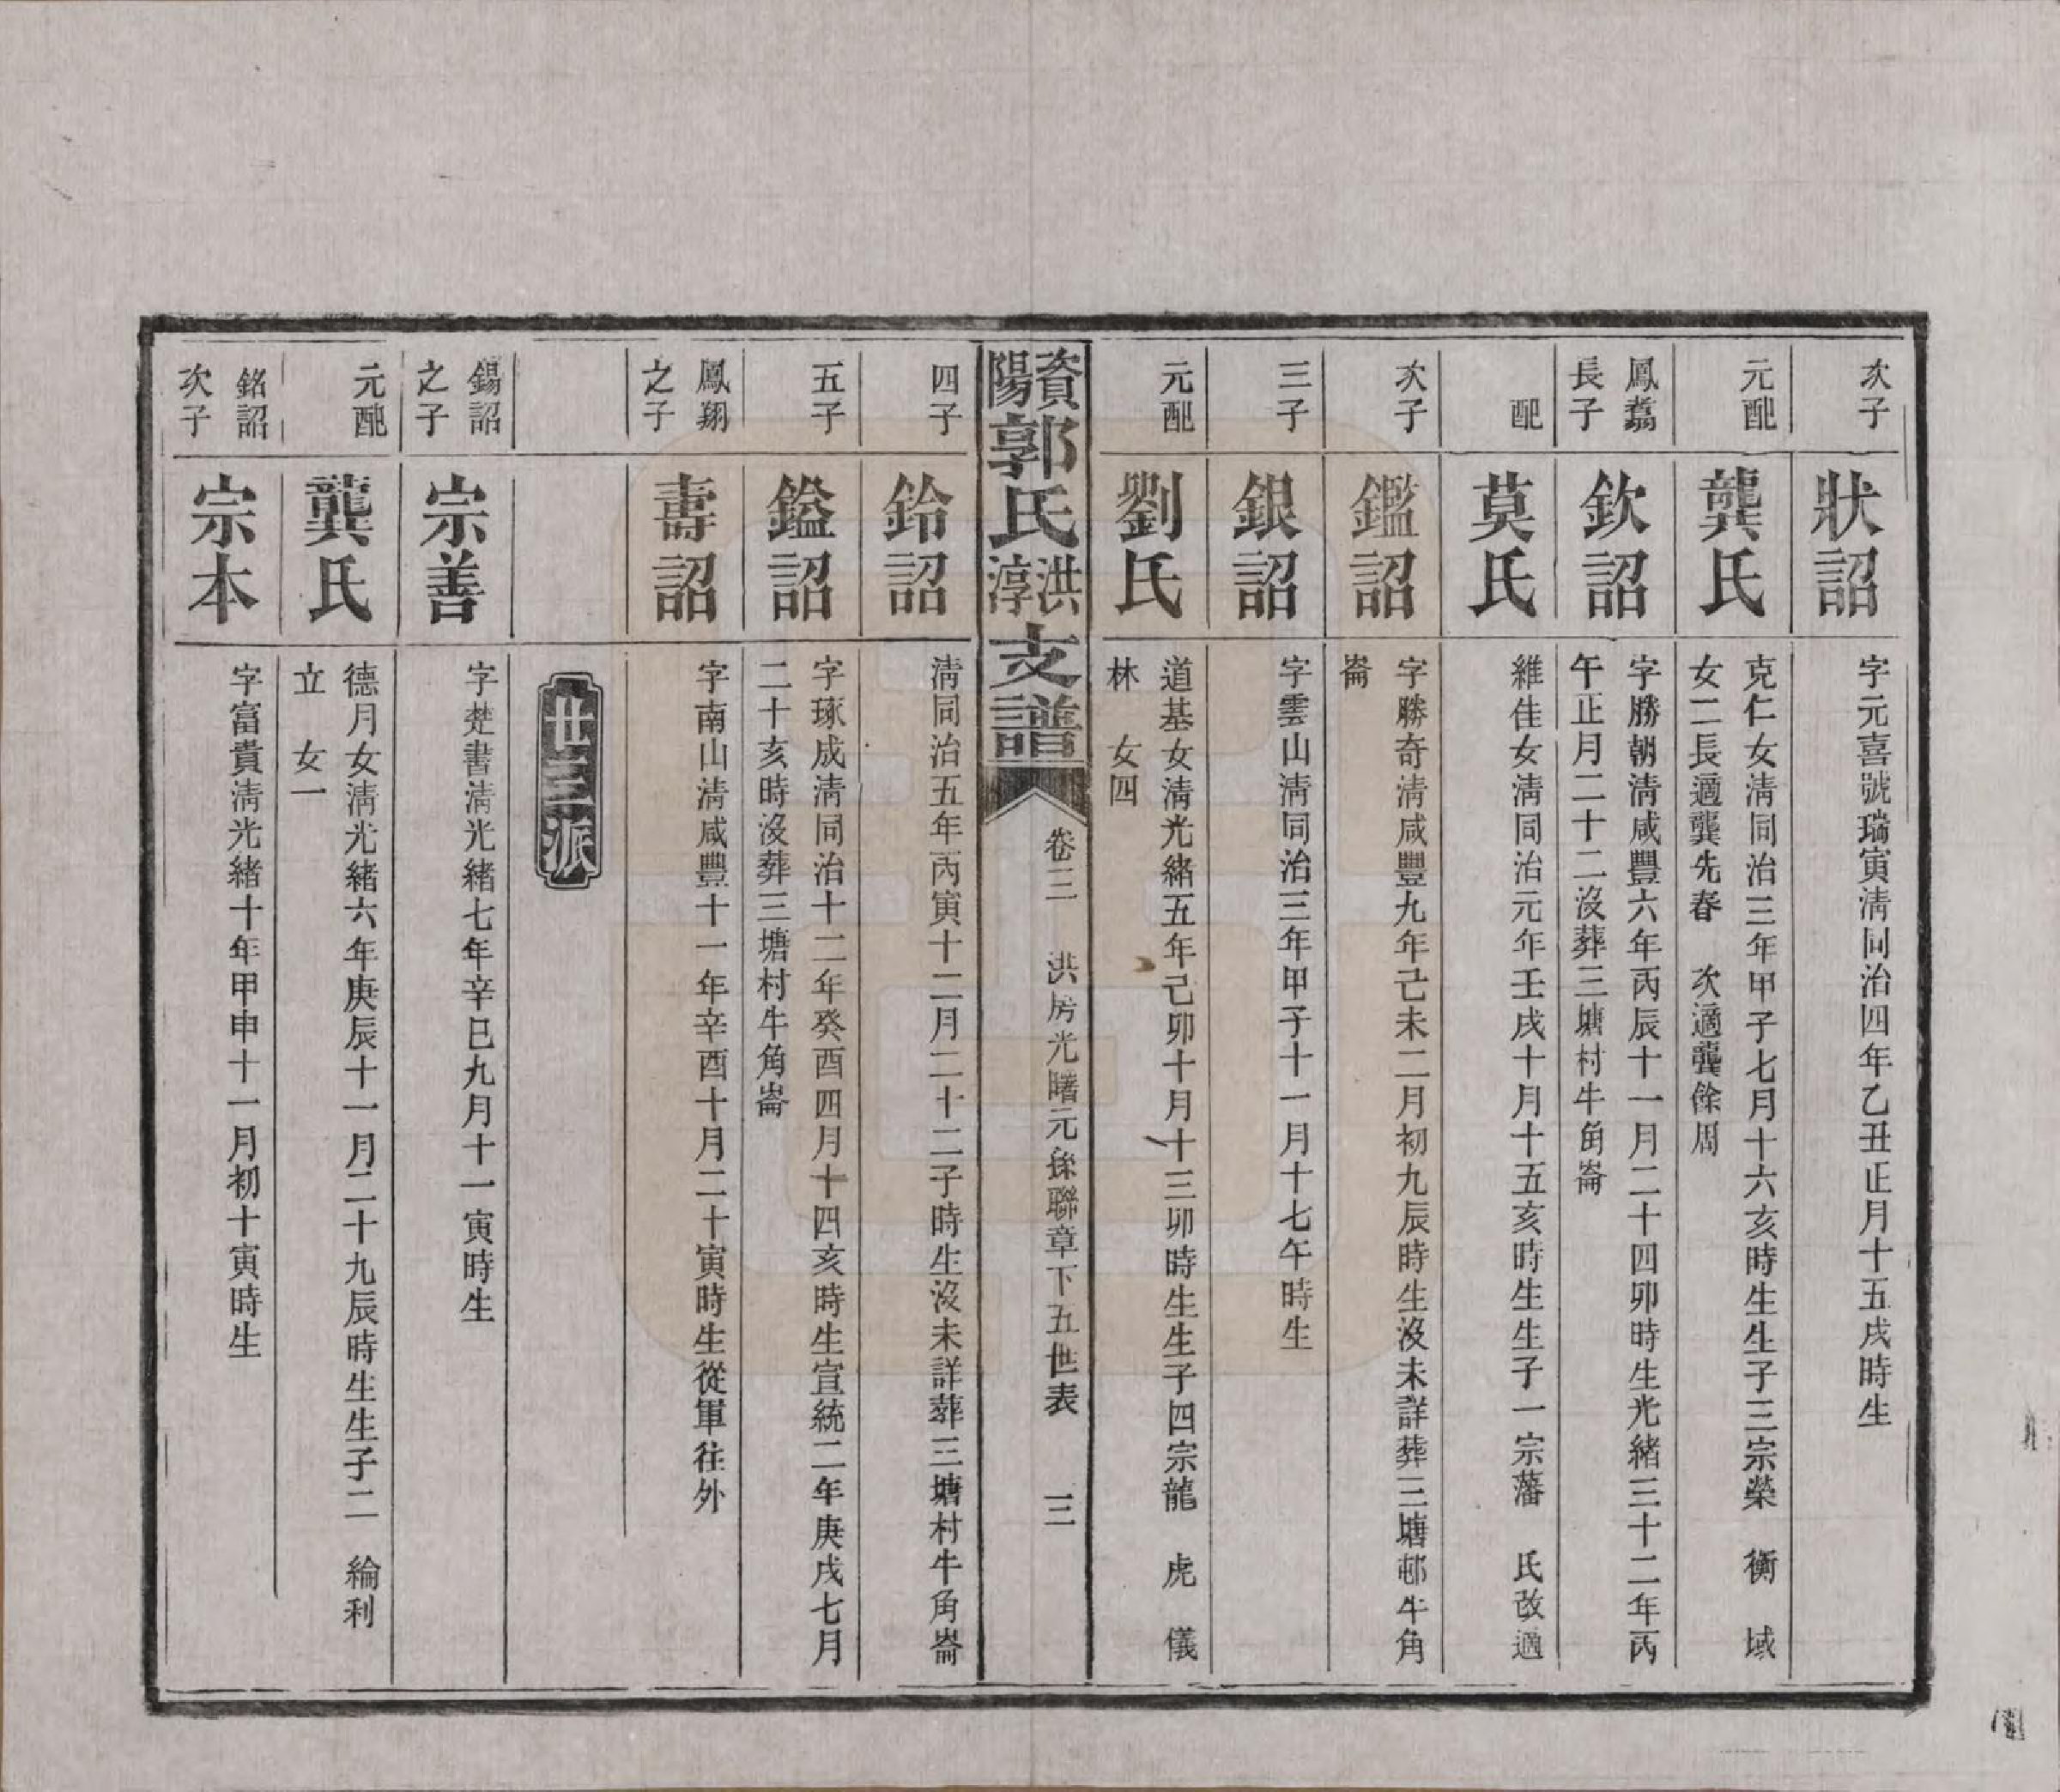 次子
狀詔
字元喜號瑞寅清同治四年乙丑正月十五戌時生
元配
龔氏
克仁女清同治三年甲子七月十六亥時生生子三宗榮 衡 域
女二長適龔先春 次適龔餘周
鳳翥
長子
欽詔
字勝朝清咸豐六年丙辰十一月二十四卯時生光緒三十二年丙
午正月二十二沒葬三塘村牛角崙
配
莫氏
維佳女清同治元年壬戌十月十五亥時生生子一宗藩 氏改適
次子
鑑詔
字勝奇清咸豐九年己未二月初九辰時生沒未詳葬三塘邨牛角
崙
三子
銀詔
字雲山清同治三年甲子十一月十七午時生
元配
劉氏
道基女清光緒五年己卯十月十三卯時生生子四宗龍 虎 儀
林 女四
資陽郭氏洪淳支譜
卷三 洪房光曙元孫聯章下五世表 三
四子
鈴詔
清同治五年丙寅十二月二十二子時生沒未詳葬三塘村牛角崙
五子
鎰詔
字琢成清同治十二年癸酉四月十四亥時生宣統二年庚戌七月
二十亥時沒葬三塘村牛角崙
鳳翔
之子
壽詔
字南山清咸豐十一年辛酉十月二十寅時生從軍往外
世三派
錫詔
之子
宗善
字楚書清光緒七年辛巳九月十一寅時生
元配
龔氏
德月女清光緒六年庚辰十一月二十九辰時生生子二 綸利
立 女一
銘詔
次子
宗本
字富貴清光緒十年甲申十一月初十寅時生